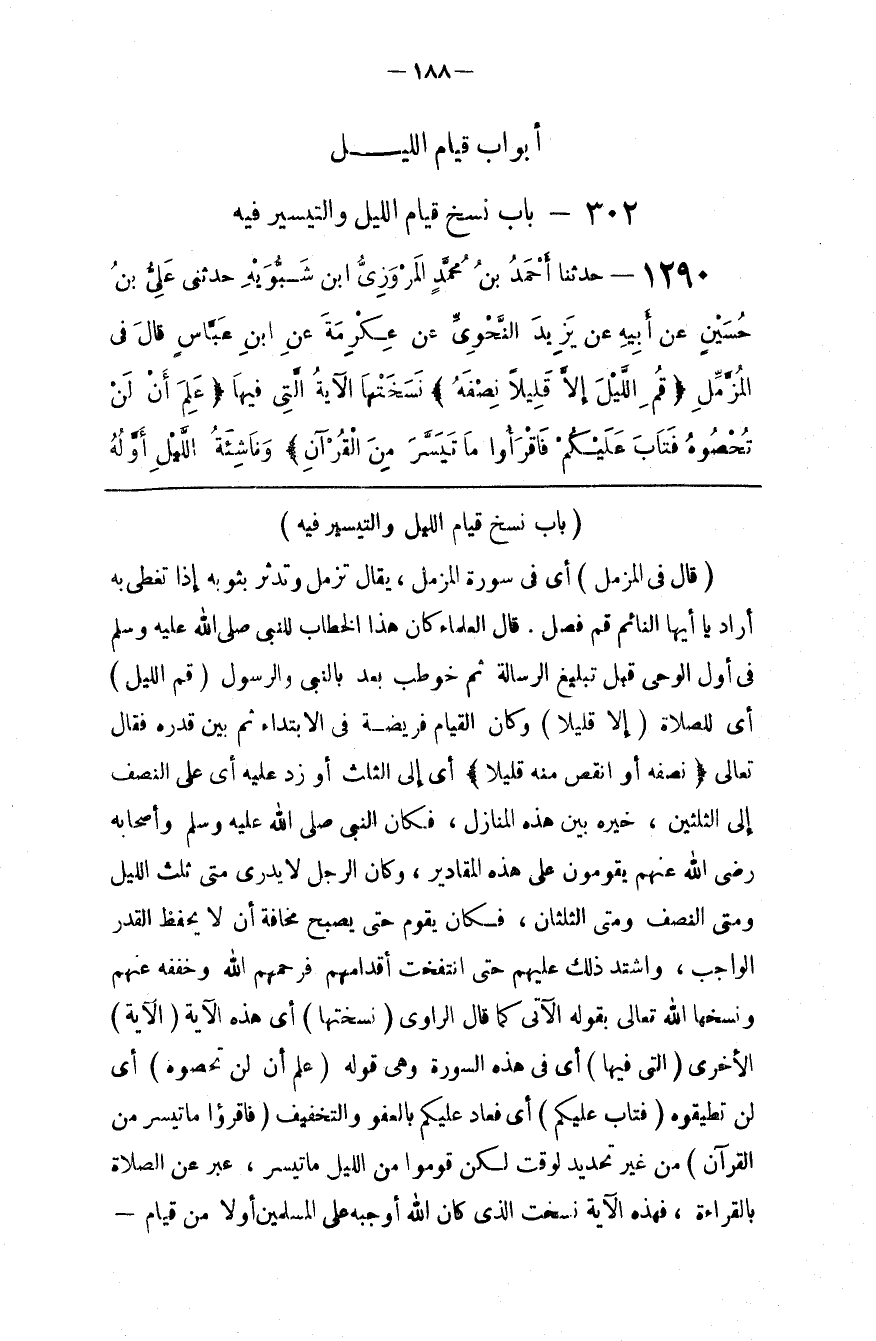 — ١٨٨ —
أبواب قيام الليـــل
٣٠٢ — باب نسخ قيام الليل والتيسير فيه
١٢٩٠ — حدثنا أَحْمَدُ بنُ مُحمَّدٍ المَرْوَزِىُّ ابن شَـبُّوَيْهِ حدثنى عَلِىُّ بنُ
حُسَيْنٍ عن أَبِيهِ عن يَزِيدَ النَّحْوِىِّ عن عِـكْرِمَةَ عن ابنِ عَبَّاسٍ قالَ فى
المُزَّمِّلِ ﴿ قُمِ اللَّيْلَ إلاَّ قَلِيلاً نِصْفَهُ ﴾ نَسَخَتْهَا الآيَةُ الَّتِى فيهَا ﴿ عَلِمَ أَنْ لَنْ
تُحْصُوهُ فَتَابَ عَلَيْـكُمْ فَاقْرَأُوا مَا تَيَسَّرَ مِنَ الْقُرْآنِ ﴾ وَنَاشِئَةُ اللَّيْلِ أَوَّلُهُ
( باب نسخ قيام الليل والتيسير فيه )
( قال فى المزمل ) أى فى سورة المزمل ، يقال تزمل وتدثر بثوبه إذا تغطى به
أراد يا أيها النائم قم فصل . قال العلماء كان هذا الخطاب للنبى صلى الله عليه وسلم
فى أول الوحى قبل تبليغ الرسالة ثم خوطب بعد بالنبى والرسول ( قم الليل )
أى للصلاة ( إلا قليلا ) وكان القيام فريضـة فى الابتداء ثم بين قدره فقال
تعالى ﴿ نصفه أو انقص منه قليلا ﴾ أى إلى الثلث أو زد عليه أى على النصف
إلى الثلثين ، خيره بين هذه المنازل ، فـكان النبى صلى الله عليه وسلم وأصحابه
رضى الله عنهم يقومون على هذه المقادير ، وكان الرجل لا يدرى متى ثلث الليل
ومتى النصف ومتى الثلثان ، فـكان يقوم حتى يصبح مخافة أن لا يحفظ القدر
الواجب ، واشتد ذلك عليهم حتى انتفخت أقدامهم فرحمهم الله وخففه عنهم
ونسخها الله تعالى بقوله الآتى كما قال الراوى ( نسختها ) أى هذه الآية ( الآية )
الأخرى ( التى فيها ) أى فى هذه السورة وهى قوله ( علم أن لن تحصوه ) أى
لن تطيقوه ( فتاب عليكم ) أى فعاد عليكم بالعفو والتخفيف ( فاقرؤا ماتيسر من
القرآن ) من غير تحديد لوقت لـكن قوموا من الليل ماتيسر ، عبر عن الصلاة
بالقراءة ، فهذه الآية نسخت الذى كان الله أوجبه على المسلمين أولا من قيام —